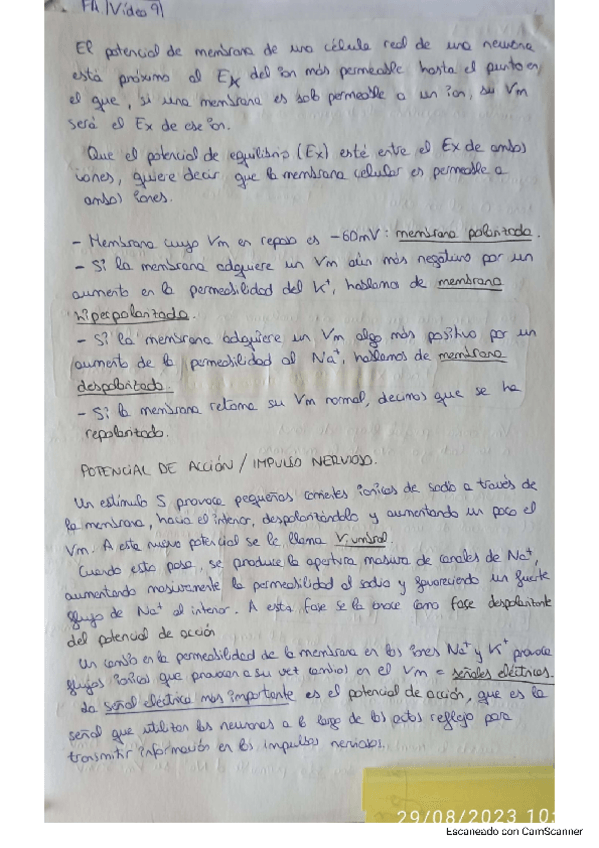 FA |Vídeo 9|
El potencial de membrana de una célula real de una neurona
está próximo al Ex del ion más permeable hasta el punto en
el que, si una membrana es solo permeable a un ion, su Vm
será el Ex de ese ion.
Que el potencial de equilibrio (Ex) esté entre el Ex de ambos
iones, quiere decir que la membrana celular es permeable a
ambos iones.
- Membrana cuyo Vm en reposo es -60mV: membrana polarizada.
- Si la membrana adquiere un Vm aún más negativo por un
aumento en la permeabilidad del K⁺, hablamos de membrana
hiperpolarizada.
- Si la membrana adquiere un Vm algo más positivo por un
aumento de la permeabilidad al Na⁺, hablamos de membrana
despolarizada.
- Si la membrana retoma su Vm normal, decimos que se ha
repolarizado.
POTENCIAL DE ACCIÓN / IMPULSO NERVIOSO.
Un estímulo S provoca pequeñas corrientes iónicas de sodio a través de
la membrana, hacia el interior, despolarizándola y aumentando un poco el
Vm. A este nuevo potencial se le llama Vumbral.
Cuando esto pasa, se produce la apertura masiva de canales de Na⁺,
aumentando masivamente la permeabilidad al sodio y favoreciendo un fuerte
flujo de Na⁺ al interior. A esta fase se la conoce como fase despolarizante
del potencial de acción
Un cambio en la permeabilidad de la membrana en los iones Na⁺ y K⁺ provoca
flujos iónicos que provocan a su vez cambios en el Vm = señales eléctricas.
La señal eléctrica más importante es el potencial de acción, que es la
señal que utilizan las neuronas a lo largo de los actos reflejo para
transmitir información en los impulsos nerviosos.
29/08/2023 10:
Escaneado con CamScanner